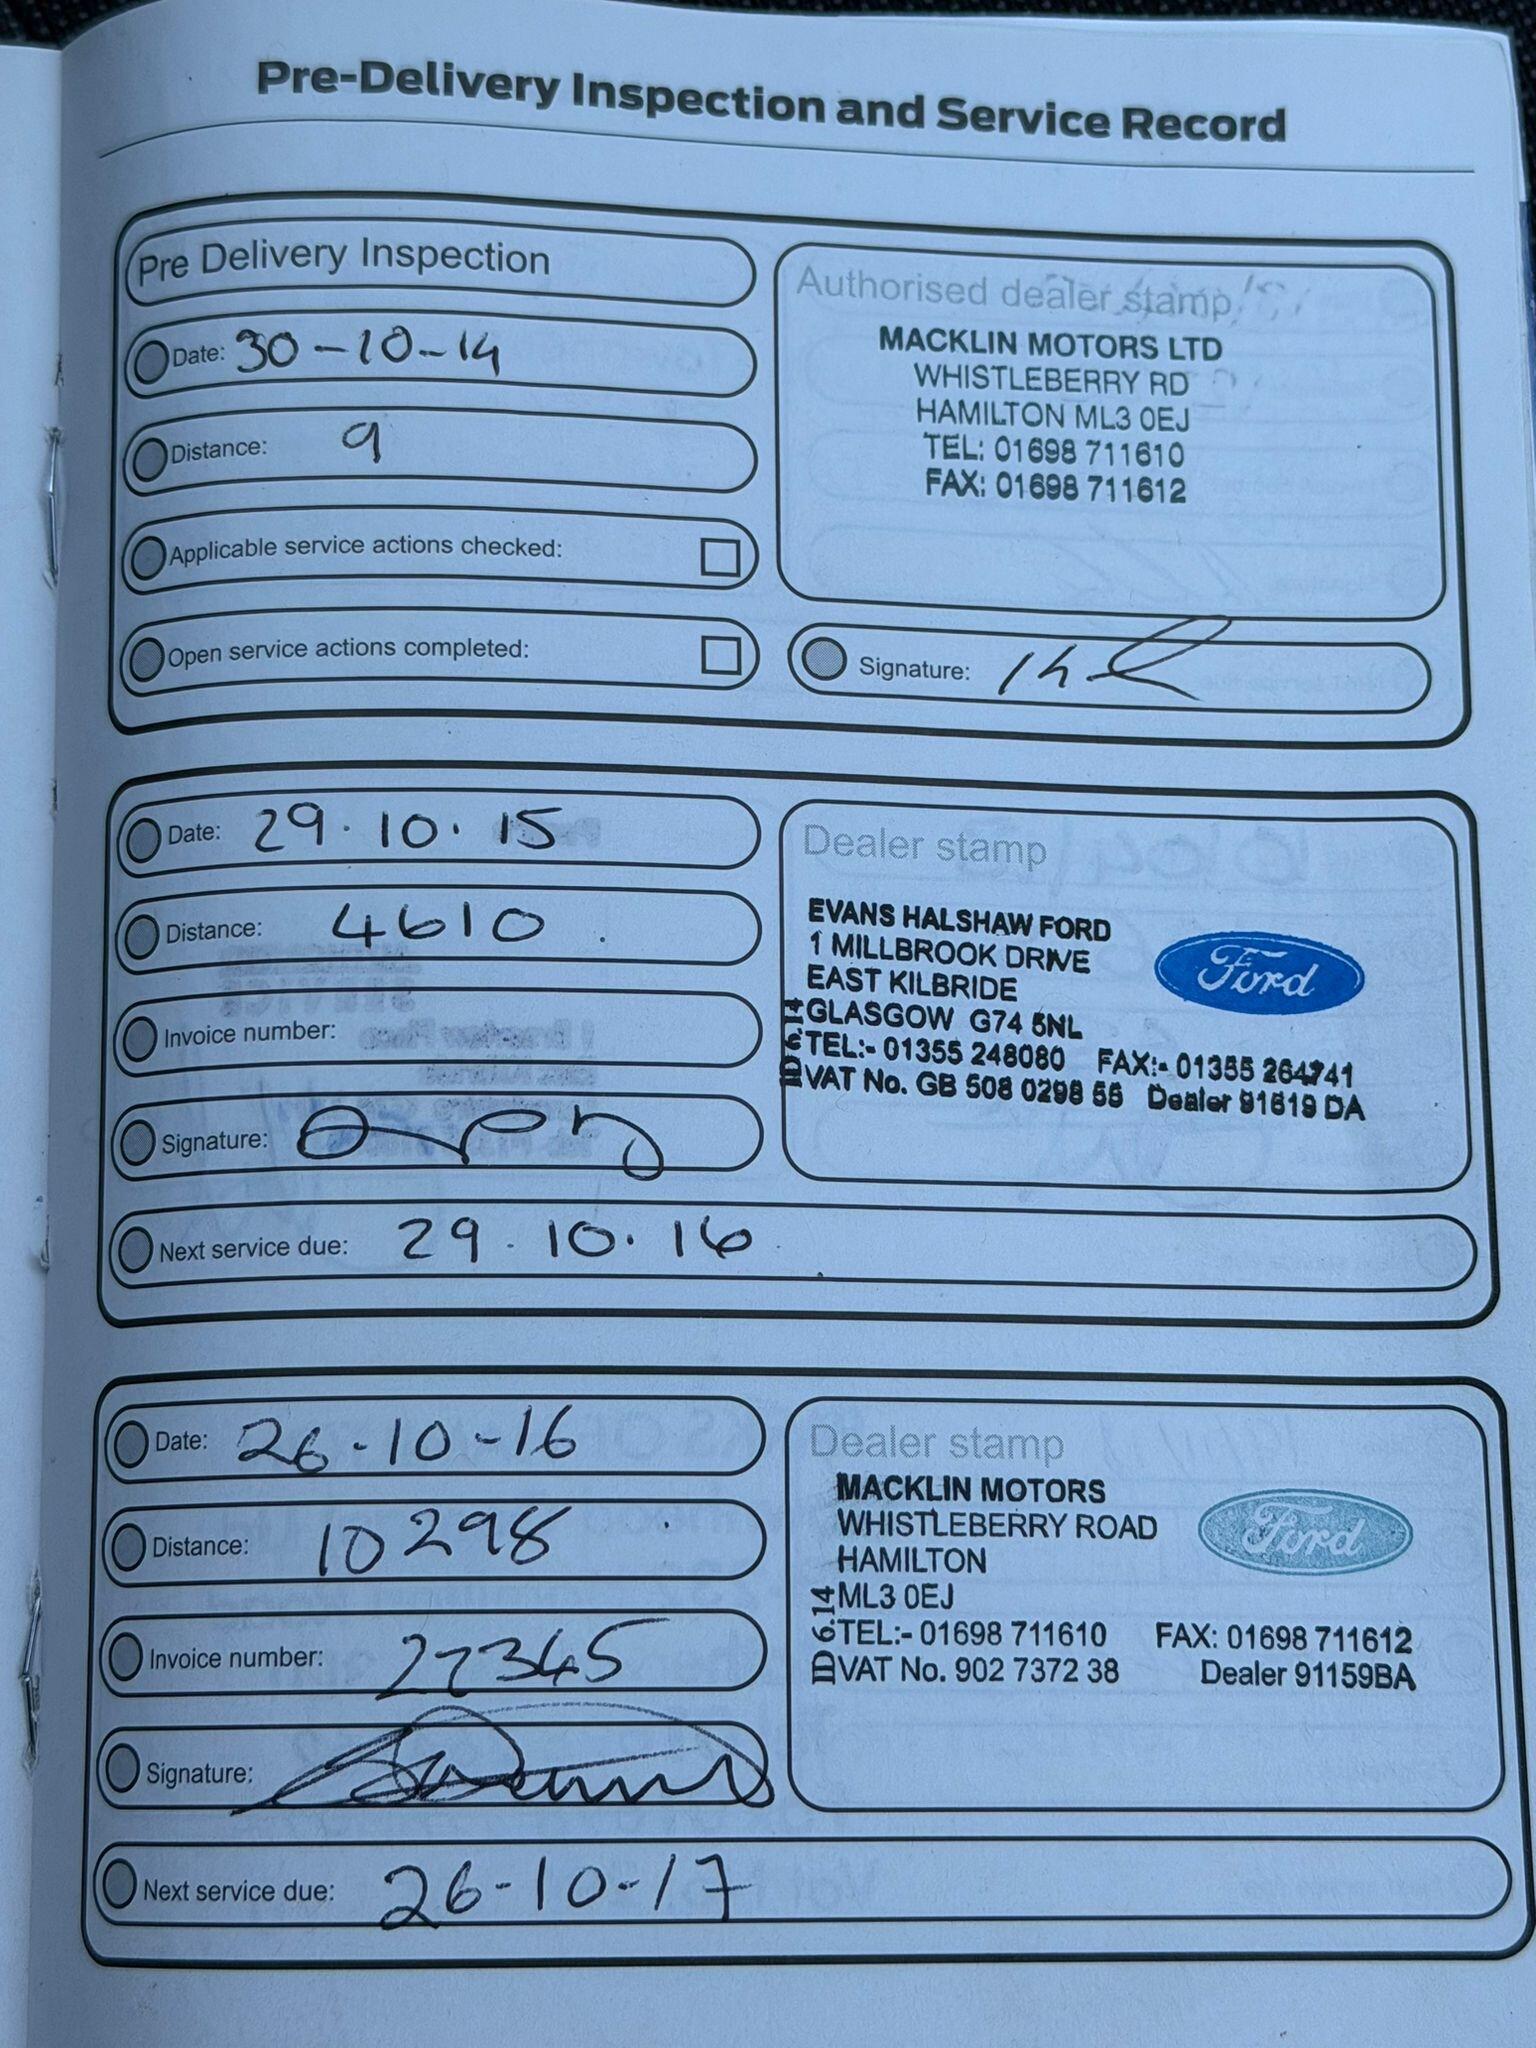 Pre-Delivery Inspection and Service Record
Pre Delivery Inspection
Date: 30-10-14
Distance: 9
Applicable service actions checked:
Open service actions completed:
Authorised dealer stamp
MACKLIN MOTORS LTD
WHISTLEBERRY RD
HAMILTON ML3 0EJ
TEL: 01698 711610
FAX: 01698 711612
Signature:
Date: 29.10.15
Distance: 4610
Invoice number:
Signature:
Dealer stamp
EVANS HALSHAW FORD
1 MILLBROOK DRIVE
EAST KILBRIDE
GLASGOW G74 5NL
TEL:- 01355 248080 FAX:- 01355 264741
VAT No. GB 508 0298 55 Dealer 91619 DA
ID 6.14
Ford
Next service due: 29.10.16
Date: 26-10-16
Distance: 10298
Invoice number: 22345
Signature:
Dealer stamp
MACKLIN MOTORS
WHISTLEBERRY ROAD
HAMILTON
ML3 0EJ
TEL:- 01698 711610 FAX: 01698 711612
VAT No. 902 7372 38 Dealer 91159BA
ID 6.14
Ford
Next service due: 26-10-17